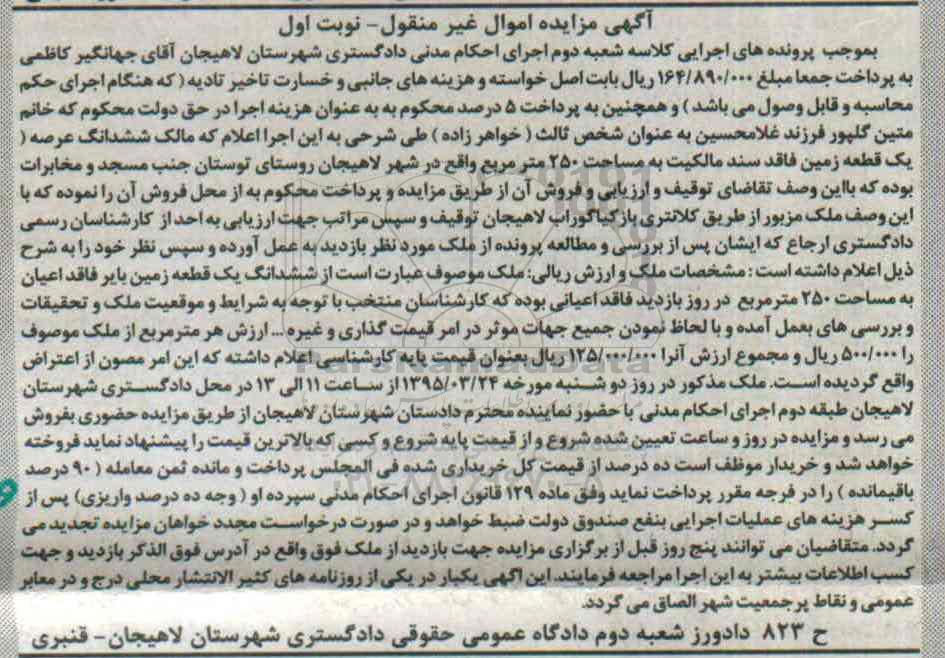 آگهی مزایده اموال غیر منقول- نوبت اول
بموجب پرونده های اجرایی کلاسه شعبه دوم اجرای احکام مدنی دادگستری شهرستان لاهیجان آقای جهانگیر کاظمی
به پرداخت جمعا مبلغ ۱۶۴/۸۹۰/۰۰۰ ریال بابت اصل خواسته و هزینه های جانبی و خسارت تاخیر تادیه ( که هنگام اجرای حکم
محاسبه و قابل وصول می باشد ) و همچنین به پرداخت ۵ درصد محکوم به به عنوان هزینه اجرا در حق دولت محکوم که خانم
متین گلپور فرزند غلامحسین به عنوان شخص ثالث ( خواهر زاده ) طی شرحی به این اجرا اعلام که مالک ششدانگ عرصه (
یک قطعه زمین فاقد سند مالکیت به مساحت ۲۵۰ متر مربع واقع در شهر لاهیجان روستای توستان جنب مسجد و مخابرات
بوده که بااین وصف تقاضای توقیف و ارزیابی و فروش آن از طریق مزایده و پرداخت محکوم به از محل فروش آن را نموده که با
این وصف ملک مزبور از طریق کلانتری بازکیاگوراب لاهیجان توقیف و سپس مراتب جهت ارزیابی به احد از کارشناسان رسمی
دادگستری ارجاع که ایشان پس از بررسی و مطالعه پرونده از ملک مورد نظر بازدید به عمل آورده و سپس نظر خود را به شرح
ذیل اعلام داشته است : مشخصات ملک و ارزش ریالی: ملک موصوف عبارت است از ششدانگ یک قطعه زمین بایر فاقد اعیان
به مساحت ۲۵۰ مترمربع در روز بازدید فاقد اعیانی بوده که کارشناسان منتخب با توجه به شرایط و موقعیت ملک و تحقیقات
و بررسی های بعمل آمده و با لحاظ نمودن جمیع جهات موثر در امر قیمت گذاری و غیره ... ارزش هر مترمربع از ملک موصوف
را ۵۰۰/۰۰۰ ریال و مجموع ارزش آنرا ۱۲۵/۰۰۰/۰۰۰ ریال بعنوان قیمت پایه کارشناسی اعلام داشته که این امر مصون از اعتراض
واقع گردیده است. ملک مذکور در روز دو شنبه مورخه ۱۳۹۵/۰۳/۲۴ از ساعت ۱۱ الی ۱۳ در محل دادگستری شهرستان
لاهیجان طبقه دوم اجرای احکام مدنی با حضور نماینده محترم دادستان شهرستان لاهیجان از طریق مزایده حضوری بفروش
می رسد و مزایده در روز و ساعت تعیین شده شروع و از قیمت پایه شروع و کسی که بالاترین قیمت را پیشنهاد نماید فروخته
خواهد شد و خریدار موظف است ده درصد از قیمت کل خریداری شده فی المجلس پرداخت و مانده ثمن معامله ( ۹۰ درصد
باقیمانده ) را در فرجه مقرر پرداخت نماید وفق ماده ۱۲۹ قانون اجرای احکام مدنی سپرده او ( وجه ده درصد واریزی) پس از
کسر هزینه های عملیات اجرایی بنفع صندوق دولت ضبط خواهد و در صورت درخواست مجدد خواهان مزایده تجدید می
گردد. متقاضیان می توانند پنج روز قبل از برگزاری مزایده جهت بازدید از ملک فوق واقع در آدرس فوق الذکر بازدید و جهت
کسب اطلاعات بیشتر به این اجرا مراجعه فرمایند. این آگهی یکبار در یکی از روزنامه های کثیر الانتشار محلی درج و در معابر
عمومی و نقاط پرجمعیت شهر الصاق می گردد.
ح ۸۲۳ دادورز شعبه دوم دادگاه عمومی حقوقی دادگستری شهرستان لاهیجان- قنبری